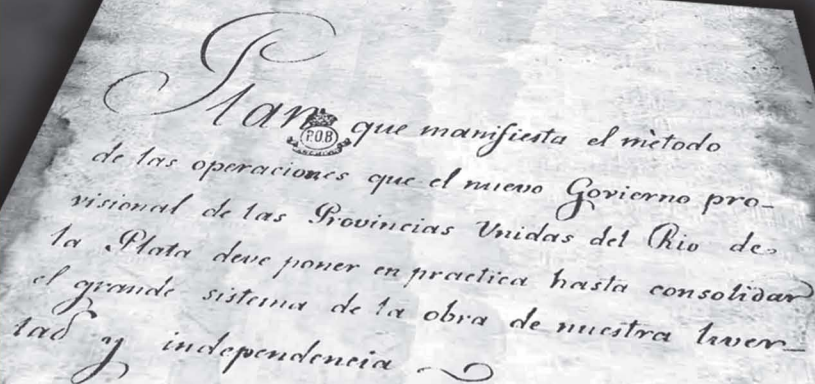 Plan que manifiesta el mètodo
P.O.B
de las operaciones que el nuevo Govierno pro-
visional de las Provincias Unidas del Rio de
la Plata deve poner en practica hasta consolidar
el grande sistema de la obra de nuestra liver-
tad y independencia